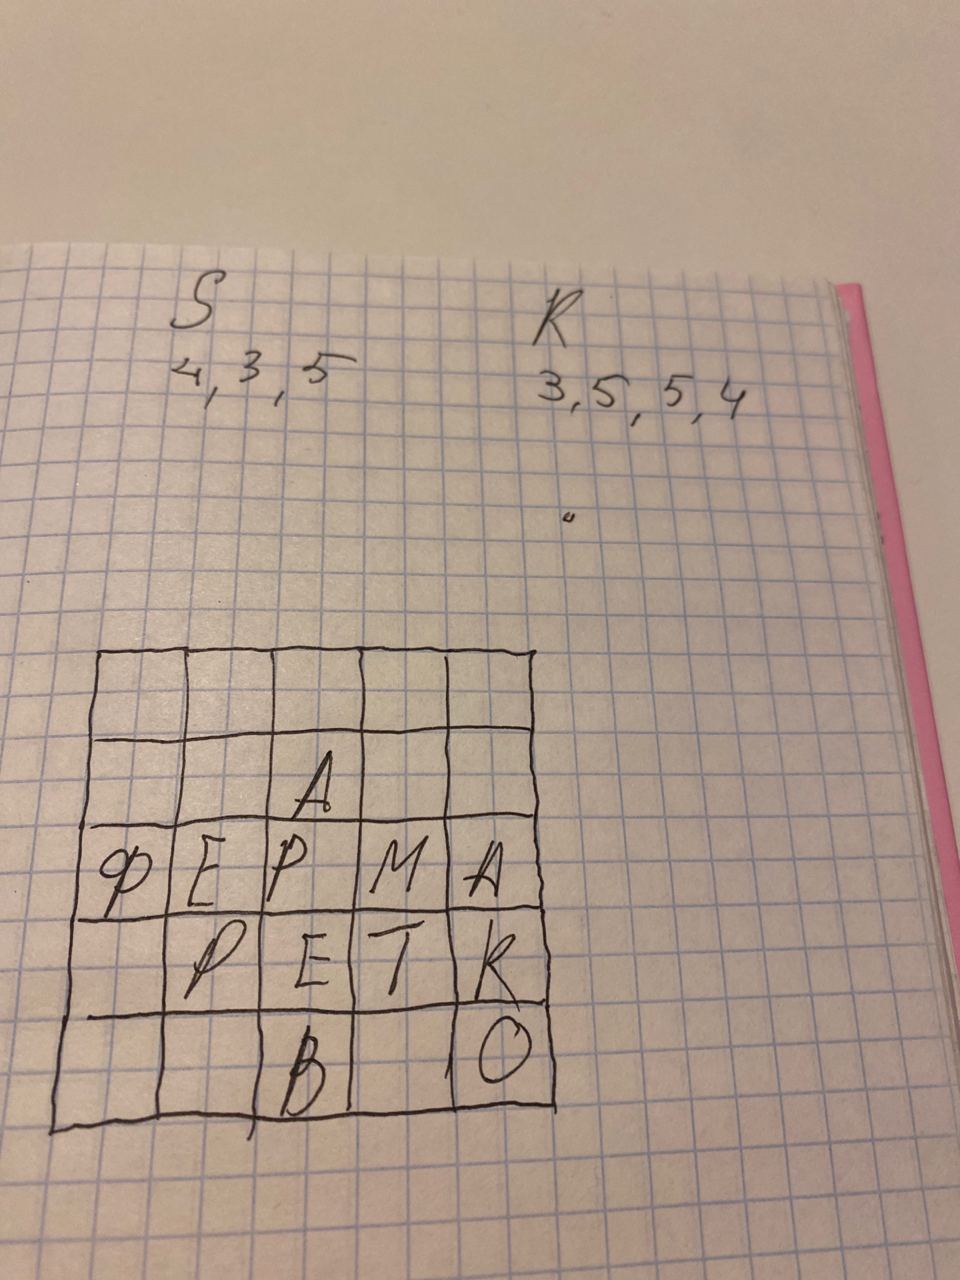 S R
4, 3, 5 3, 5, 5, 4
А
Ф Е Р М А
Р Е Т К
В О